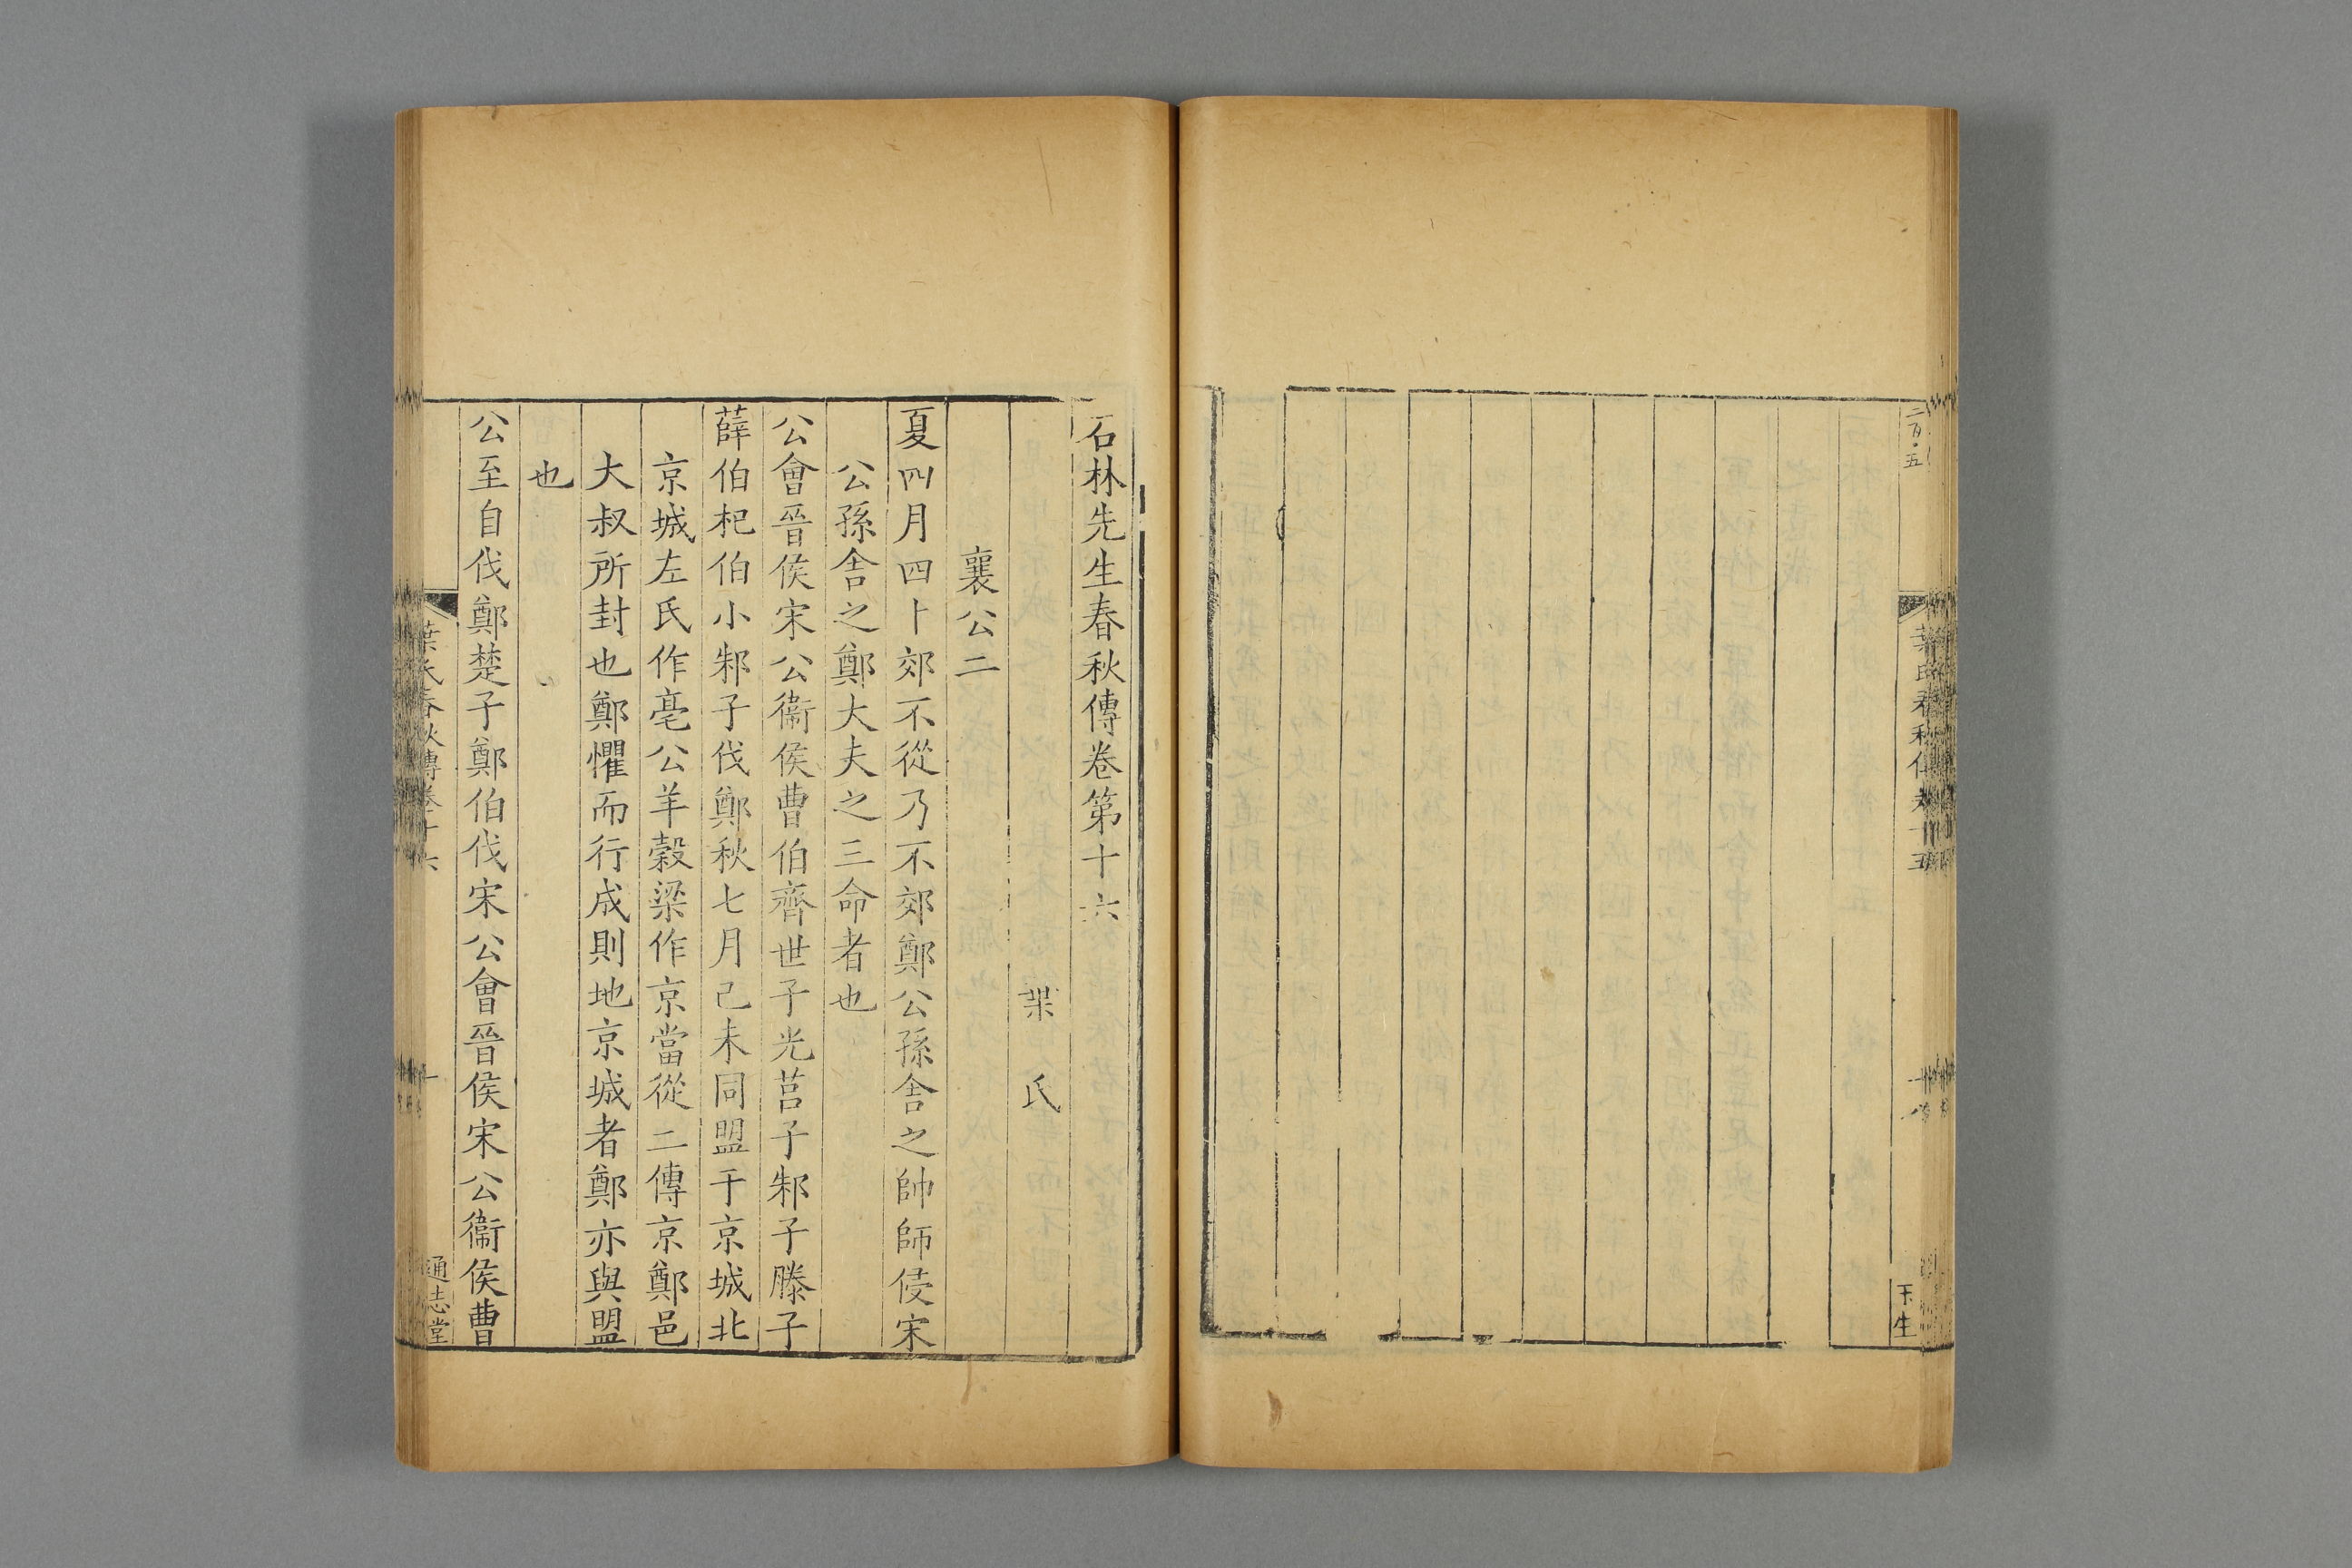 二百·五
葉氏春秋傳卷十五
十八
王生
石林先生春秋傳卷第十六
葉氏
襄公二
夏四月四卜郊不從乃不郊鄭公孫舍之帥師侵宋
公孫舍之鄭大夫之三命者也
公會晉侯宋公衞侯曹伯齊世子光莒子邾子滕子
薛伯杞伯小邾子伐鄭秋七月己未同盟于京城北
京城左氏作亳公羊穀梁作京當從二傳京鄭邑
大叔所封也鄭懼而行成則地京城者鄭亦與盟
也
公至自伐鄭楚子鄭伯伐宋公會晉侯宋公衞侯曹
葉氏春秋傳卷十六
一
通志堂